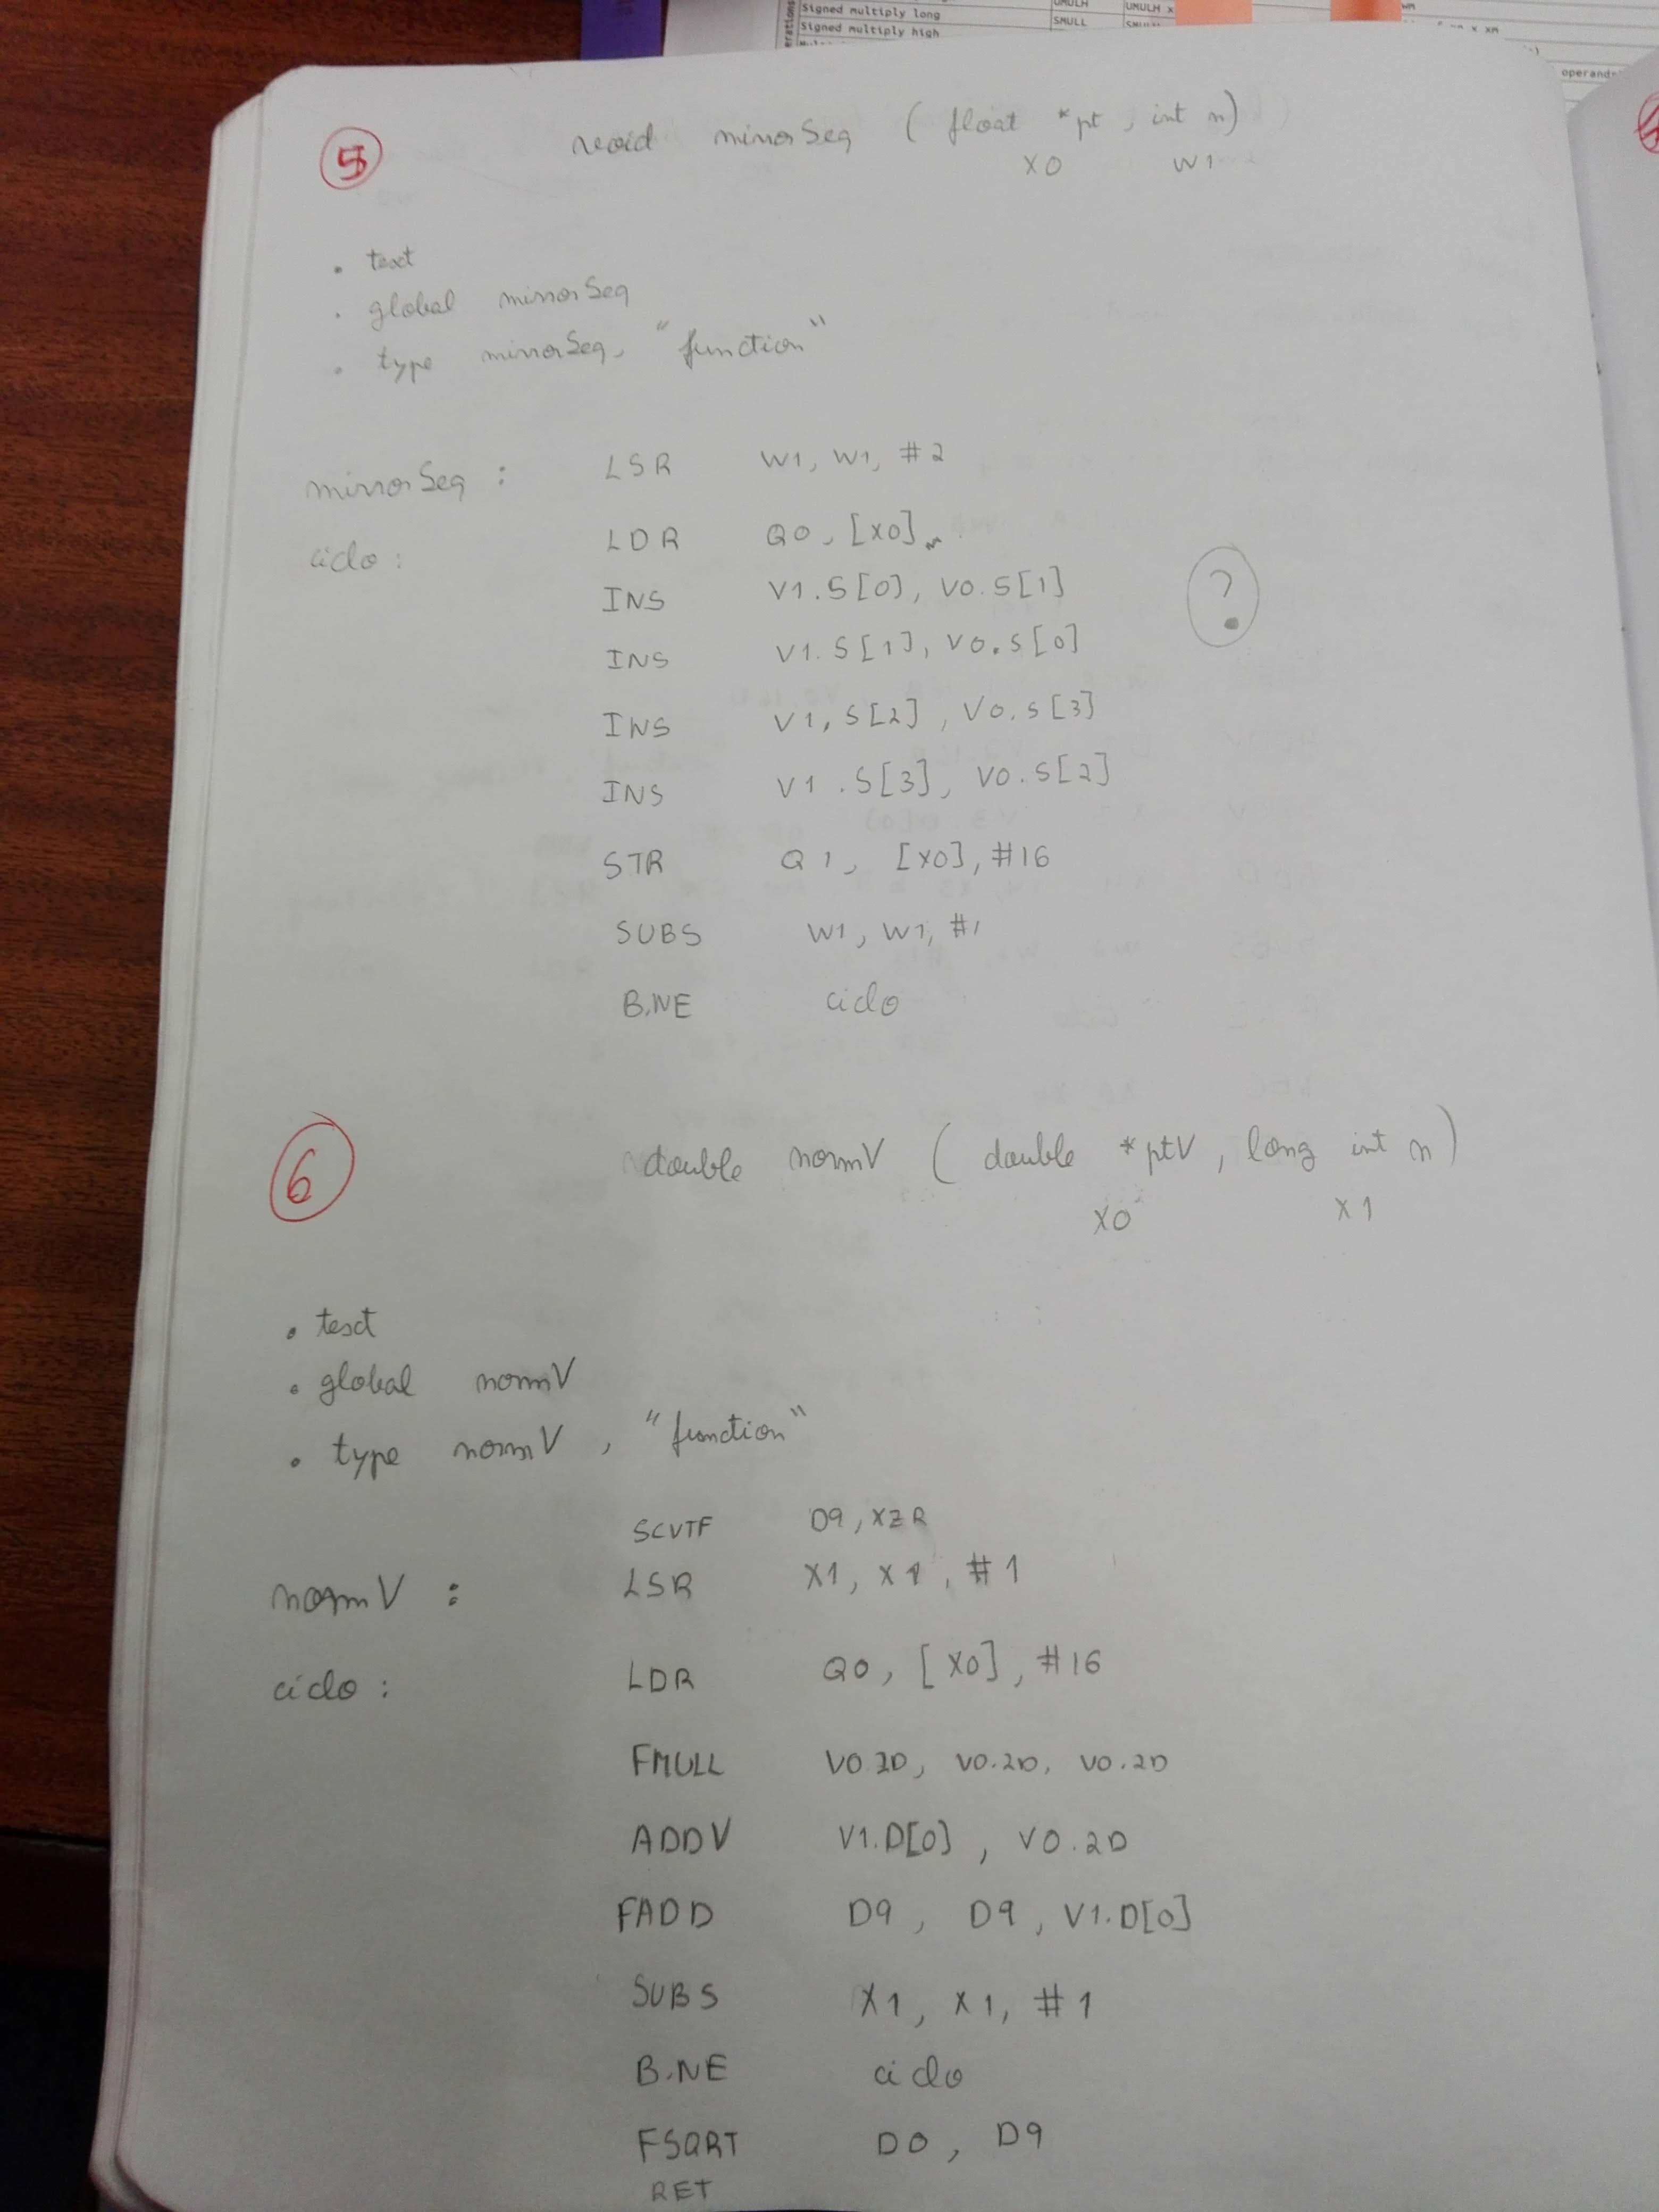 Signed multiply long SMULL
Signed multiply high
UMULH
UMULH
operand
5 void mirrorSeq ( float *pt , int n)
X0 W1
. text
. global mirrorSeq
. type mirrorSeq, "function"
mirrorSeq : LSR W1, W1, #2
ciclo : LDR Q0, [X0]
INS V1.S[0], V0.S[1]
?
INS V1.S[1], V0.S[0]
INS V1.S[2], V0.S[3]
INS V1.S[3], V0.S[2]
STR Q1, [X0], #16
SUBS W1, W1, #1
B.NE ciclo
6 double normV ( double *ptV , long int n)
X0 X1
. text
. global normV
. type normV , "function"
SCVTF D9, XZR
normV : LSR X1, X1, #1
ciclo : LDR Q0, [X0], #16
FMULL V0.2D, V0.2D, V0.2D
ADDV V1.D[0] , V0.2D
FADD D9 , D9 , V1.D[0]
SUBS X1, X1, #1
B.NE ciclo
FSQRT D0 , D9
RET